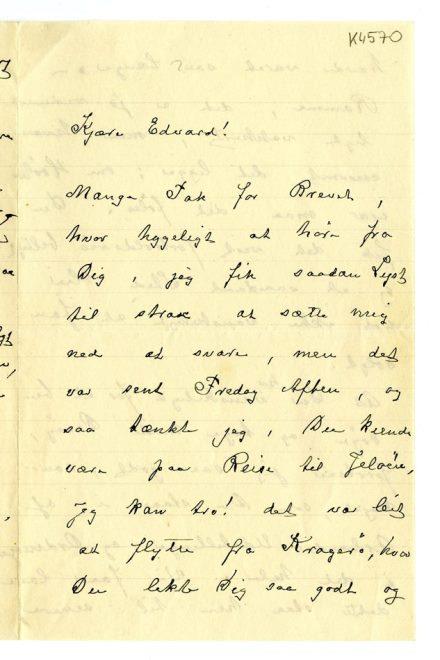 K4570
Kjære Edvard!
Mange Tak for Brevet,
hvor hyggeligt at höre fra
Dig, jeg fik saadan Lyst
til strax at sætte mig
ned at svare, men det
var sent Fredag Aften, og
saa tænkte jeg, Du kunde
være paa Reise til Jelöen,
jeg kan tro! det var leit
at flytte fra Kragerö, hvor
Du likte Dig saa godt og